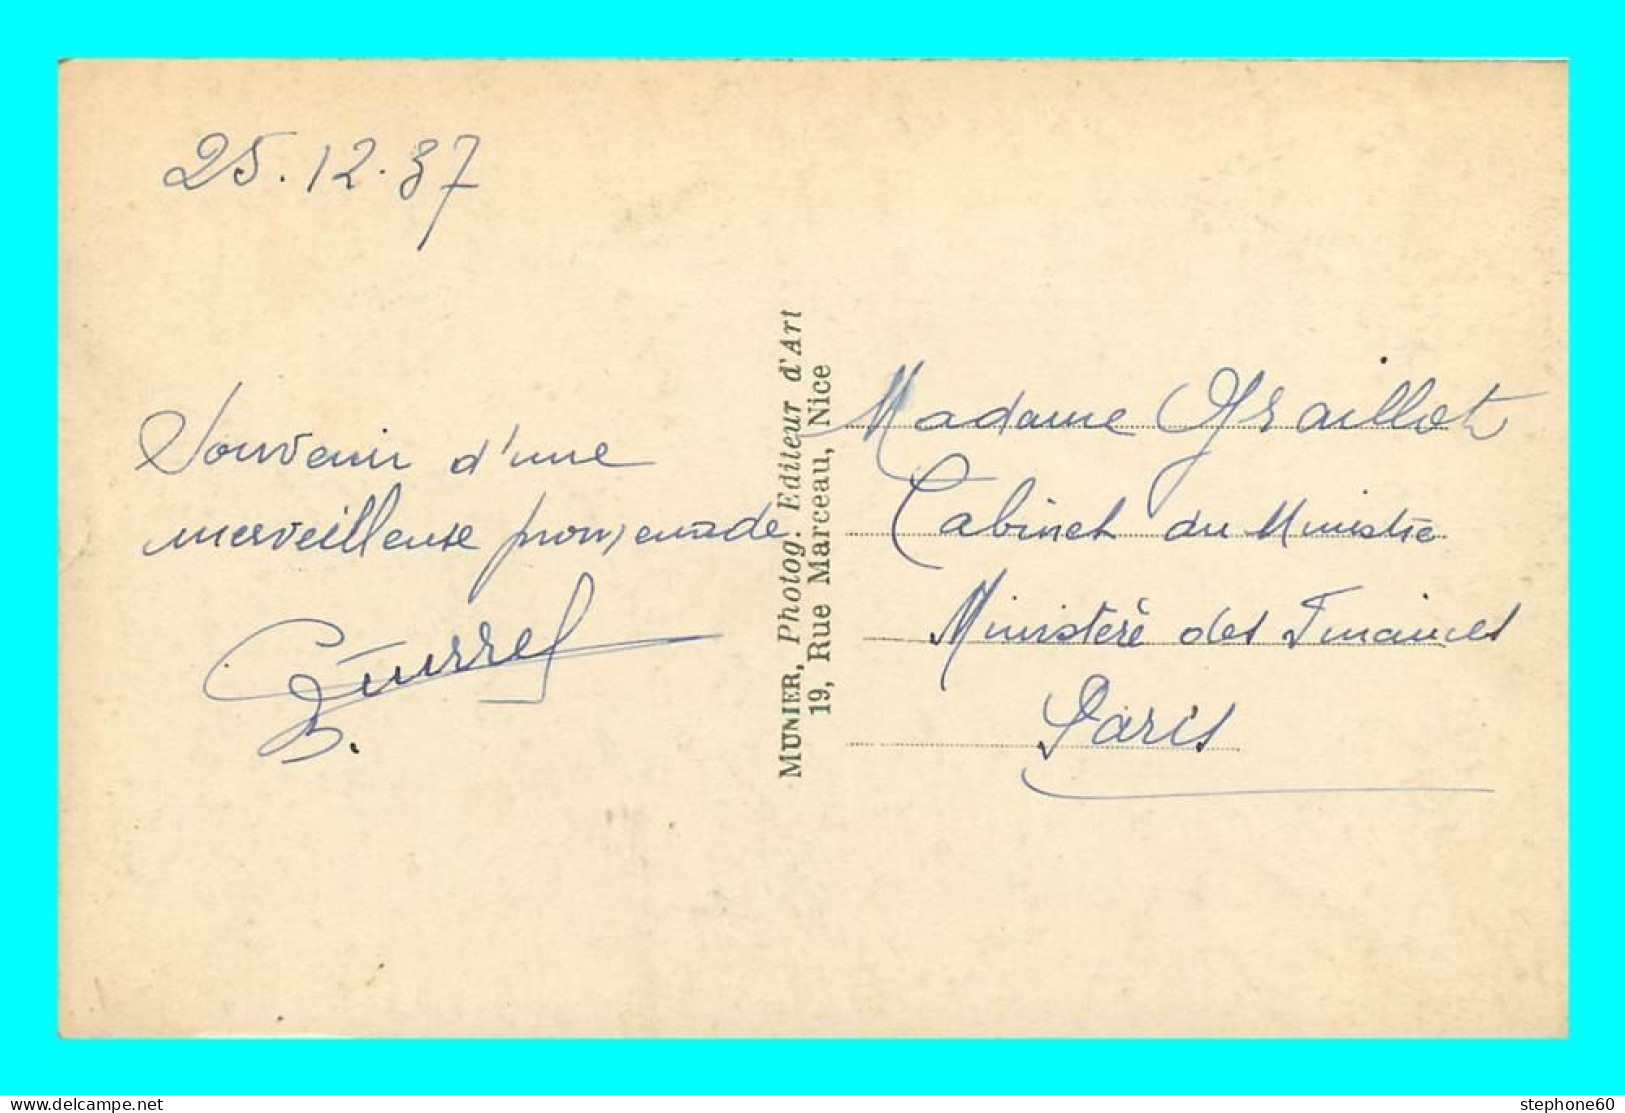 25.12.37
Souvenir d'une
merveilleuse promenade
MUNIER, Photog. Editeur d'Art
19, Rue Marceau, Nice
Madame Graillot
Cabinet du Ministre
Ministère des Finances
Paris
www.delcampe.net
stephone60